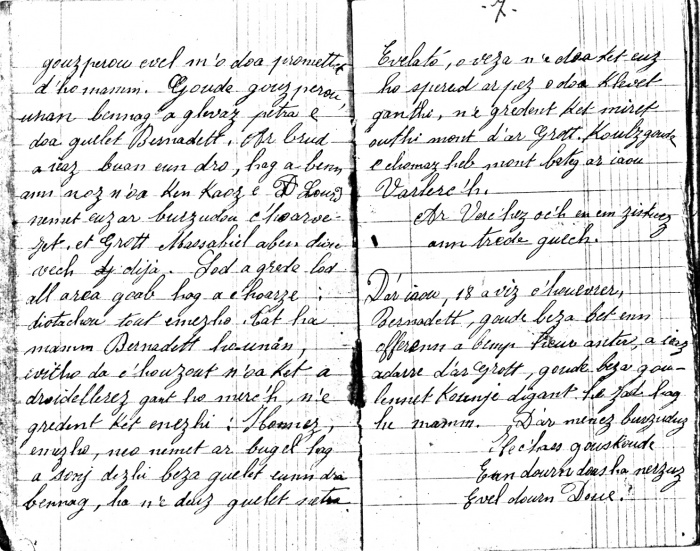 gouzperou evel m'o doa promettet
d'ho mamm. Goude gouzperou,
unan bennag a glevaz petra e
doa guelet Bernadett. Ar brud
a ieaz buan eun dro, hag a-benn
ann noz n'oa ken kaoz e Lourd
nemet euz ar burzudou c'hoarve-
zet, et Grott Massabiel aben diou
vech dija. Lod a grede lod
all area goab hag a c'hoarze :
diotachou tout emezho. Tat ha
mamm Bernadett ho unàn,
evitho da c'houzout n'oa ket a
droidellerez gant ho merc'h, n'e
gredent ket enezhi : Honnez,
emezho, neo nemet ar bugel hag
a sonj dezhi beza guelet eunn dra
bennag, ha n'e deuz guelet netra
7.
Evelató, o veza n'e doa ket euz
ho spered ar pez o doa klevet
ganthi, n'e gredent ket miret
outhi mont d'ar Grott. Koulzgoude
e chomaz heb mont beteg ar iaou
Varlerc'h.
Ar Verc'hez oc'h en em ziskuez
ann trede guech.
D'ar iaou, 18 a viz c'houevrer,
Bernadett, goude beza bet enn
offerenn a bemp heur anter, a ieaz
adarre d'ar Grott, goude beza gou-
lennet kounje digant he zad hag
he mamm. D'ar menez burzuduz
E lec'h ass gouskoude
Eun dourn dous ha nerzuz
Evel dourn Doue.